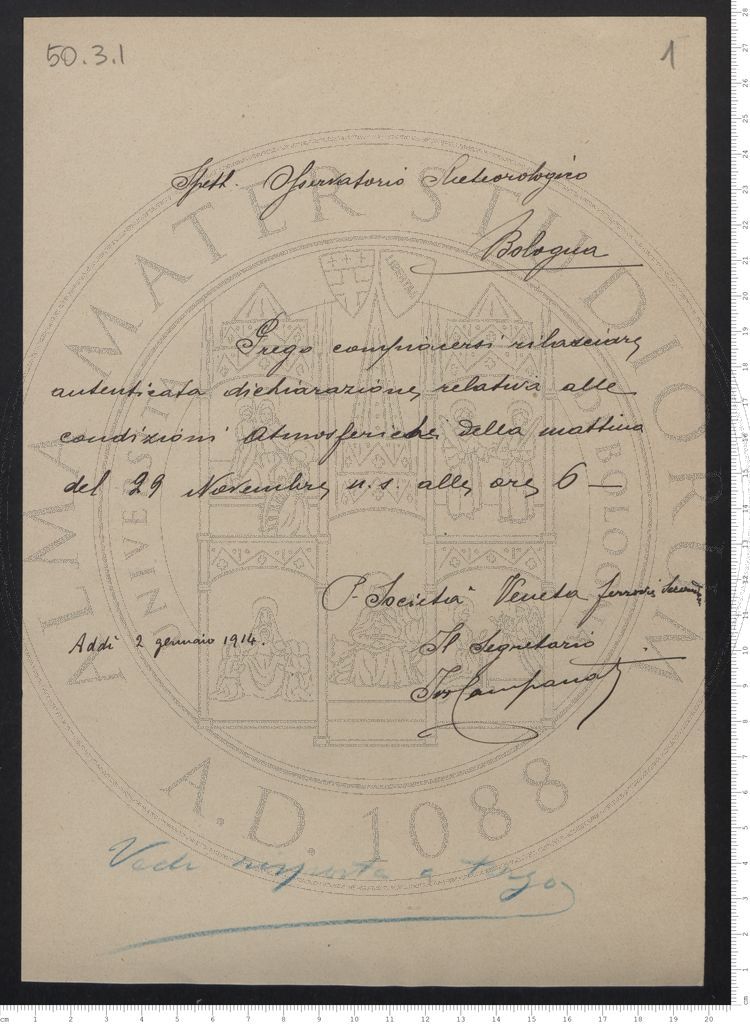 50.3.1
1
Spett. Osservatorio Meteorologico
Bologna
Prego compiacersi rilasciare
autenticata dichiarazione relativa alle
condizioni Atmosferiche della mattina
del 29 Novembre u.s. alle ore 6 —
P. Società Veneta ferrovie
Addì 2 gennaio 1914.
Il Segretario
Vedi risposta a tergo
ALMA MATER STUDIORUM
A.D. 1088